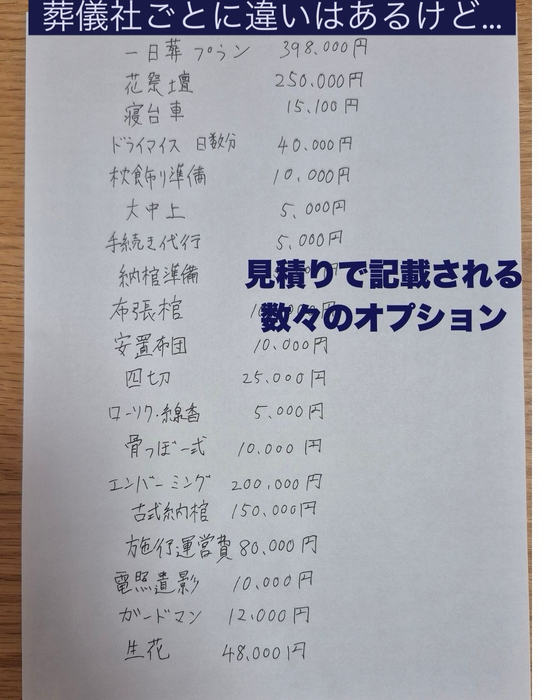 葬儀社ごとに違いはあるけど...
一日葬 プラン 398.000円
花祭壇 250.000円
寝台車 15.100円
ドライアイス 日数分 40.000円
枕飾り準備 10.000円
大中上 5.000円
手続き代行 5.000円
納棺準備
見積りで記載される
布張棺
数々のオプション
安置布団 10.000円
四切 25.000円
ローソク・線香 5.000円
骨つぼ一式 10.000円
エンバーミング 200.000円
古式納棺 150.000円
施行運営費 80.000円
電照遺影 10.000円
ガードマン 12.000円
生花 48.000円